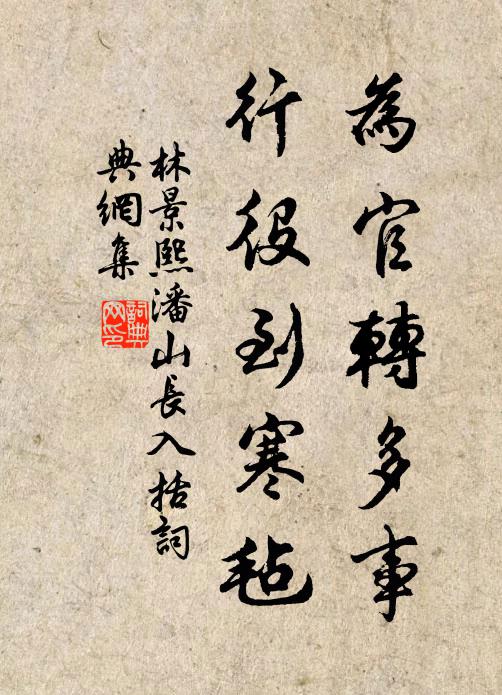 為官轉多事
行役到寒毡
林景熙潘山長入括詞
典網集
詞典網印